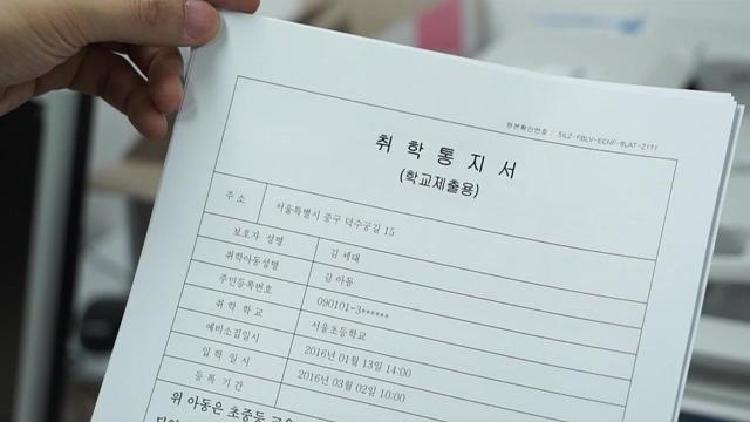 취 학 통 지 서
(학교제출용)
주 소 서울특별시 중구 덕수궁길 15
보호자 성명 김 세대
취학아동성명 김 아동
주민등록번호 090101-3******
취 학 학 교 서울초등학교
예비소집일시 2016년 01월 13일 14:00
입 학 일 시 2016년 03월 02일 10:00
등 록 기 간
위 아동은 초중등